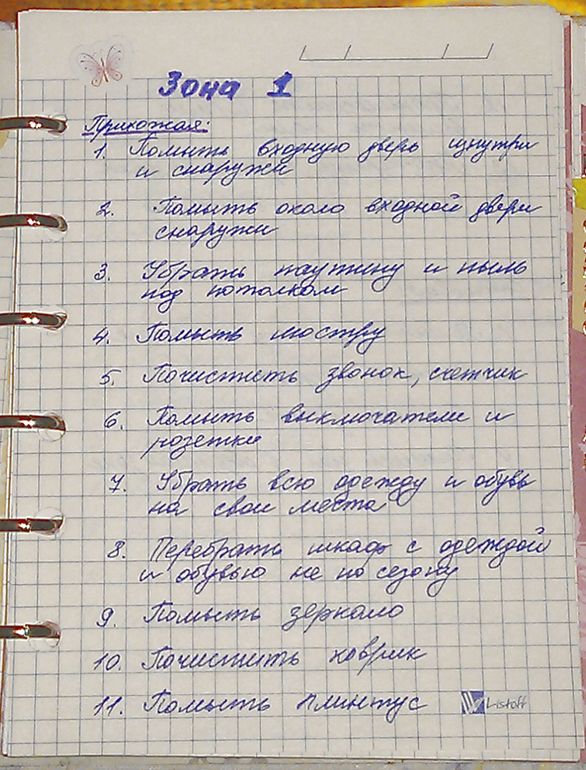 Зона 1
Прихожая:
1. Помыть входную дверь изнутри
и снаружи
2. Помыть около входной двери
снаружи
3. Убрать паутину и пыль
под потолком
4. Помыть люстру
5. Почистить звонок, счетчик
6. Помыть выключатели и
розетки
7. Убрать всю одежду и обувь
на свои места
8. Перебрать шкаф с одеждой
и обувью не по сезону
9. Помыть зеркало
10. Почистить коврик
11. Помыть плинтус
Listoff